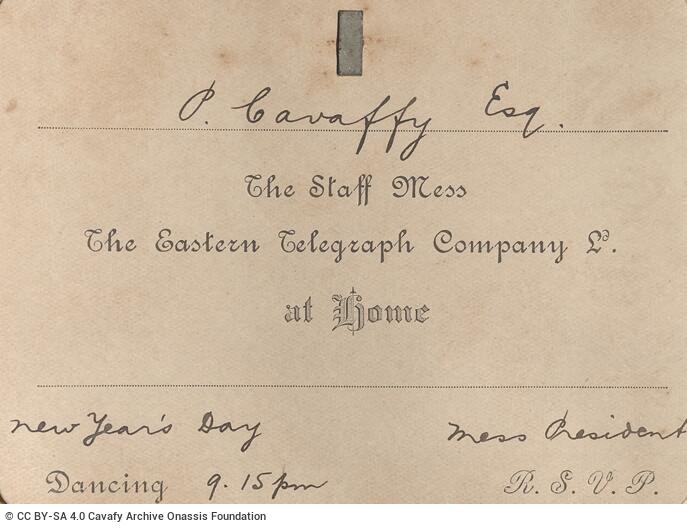 P. Cavaffy Esq.
The Staff Mess
The Eastern Telegraph Company Ld.
at Home
New Year's Day
Mess President
Dancing 9.15 pm
R. S. V. P.
© CC BY-SA 4.0 Cavafy Archive Onassis Foundation